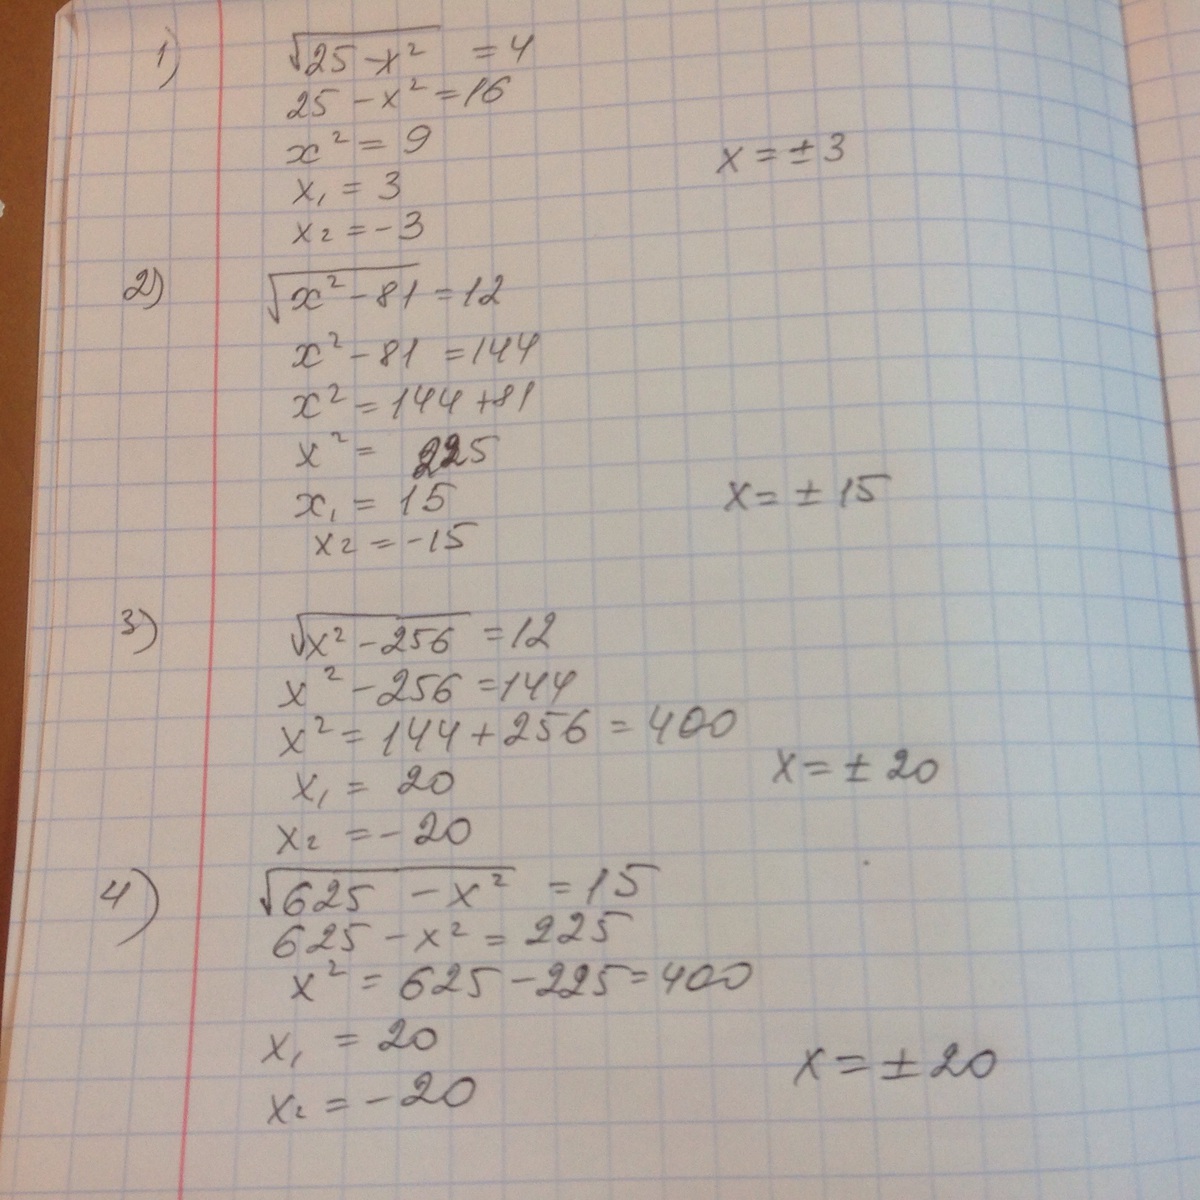 1) √25 - x² = 4
25 - x² = 16
x² = 9
x₁ = 3
x₂ = -3
x = ± 3
2) √x² - 81 = 12
x² - 81 = 144
x² = 144 + 81
x² = 225
x₁ = 15
x₂ = -15
x = ± 15
3) √x² - 256 = 12
x² - 256 = 144
x² = 144 + 256 = 400
x₁ = 20
x₂ = -20
x = ± 20
4) √625 - x² = 15
625 - x² = 225
x² = 625 - 225 = 400
x₁ = 20
x₂ = -20
x = ± 20